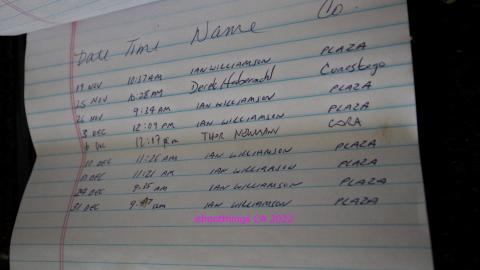 Date Time Name Co.
19 NOV 10:37 AM IAN WILLIAMSON PLAZA
25 NOV 10:28 AM Derek Conestoga
26 NOV 9:34 AM IAN WILLIAMSON PLAZA
8 DEC 12:09 PM IAN WILLIAMSON PLAZA
THOR NEWMANN
10 DEC 11:26 AM IAN WILLIAMSON PLAZA
DEC 11:21 AM IAN WILLIAMSON PLAZA
DEC IAN WILLIAMSON PLAZA
31 DEC IAN WILLIAMSON PLAZA
ishootthings CA 2022